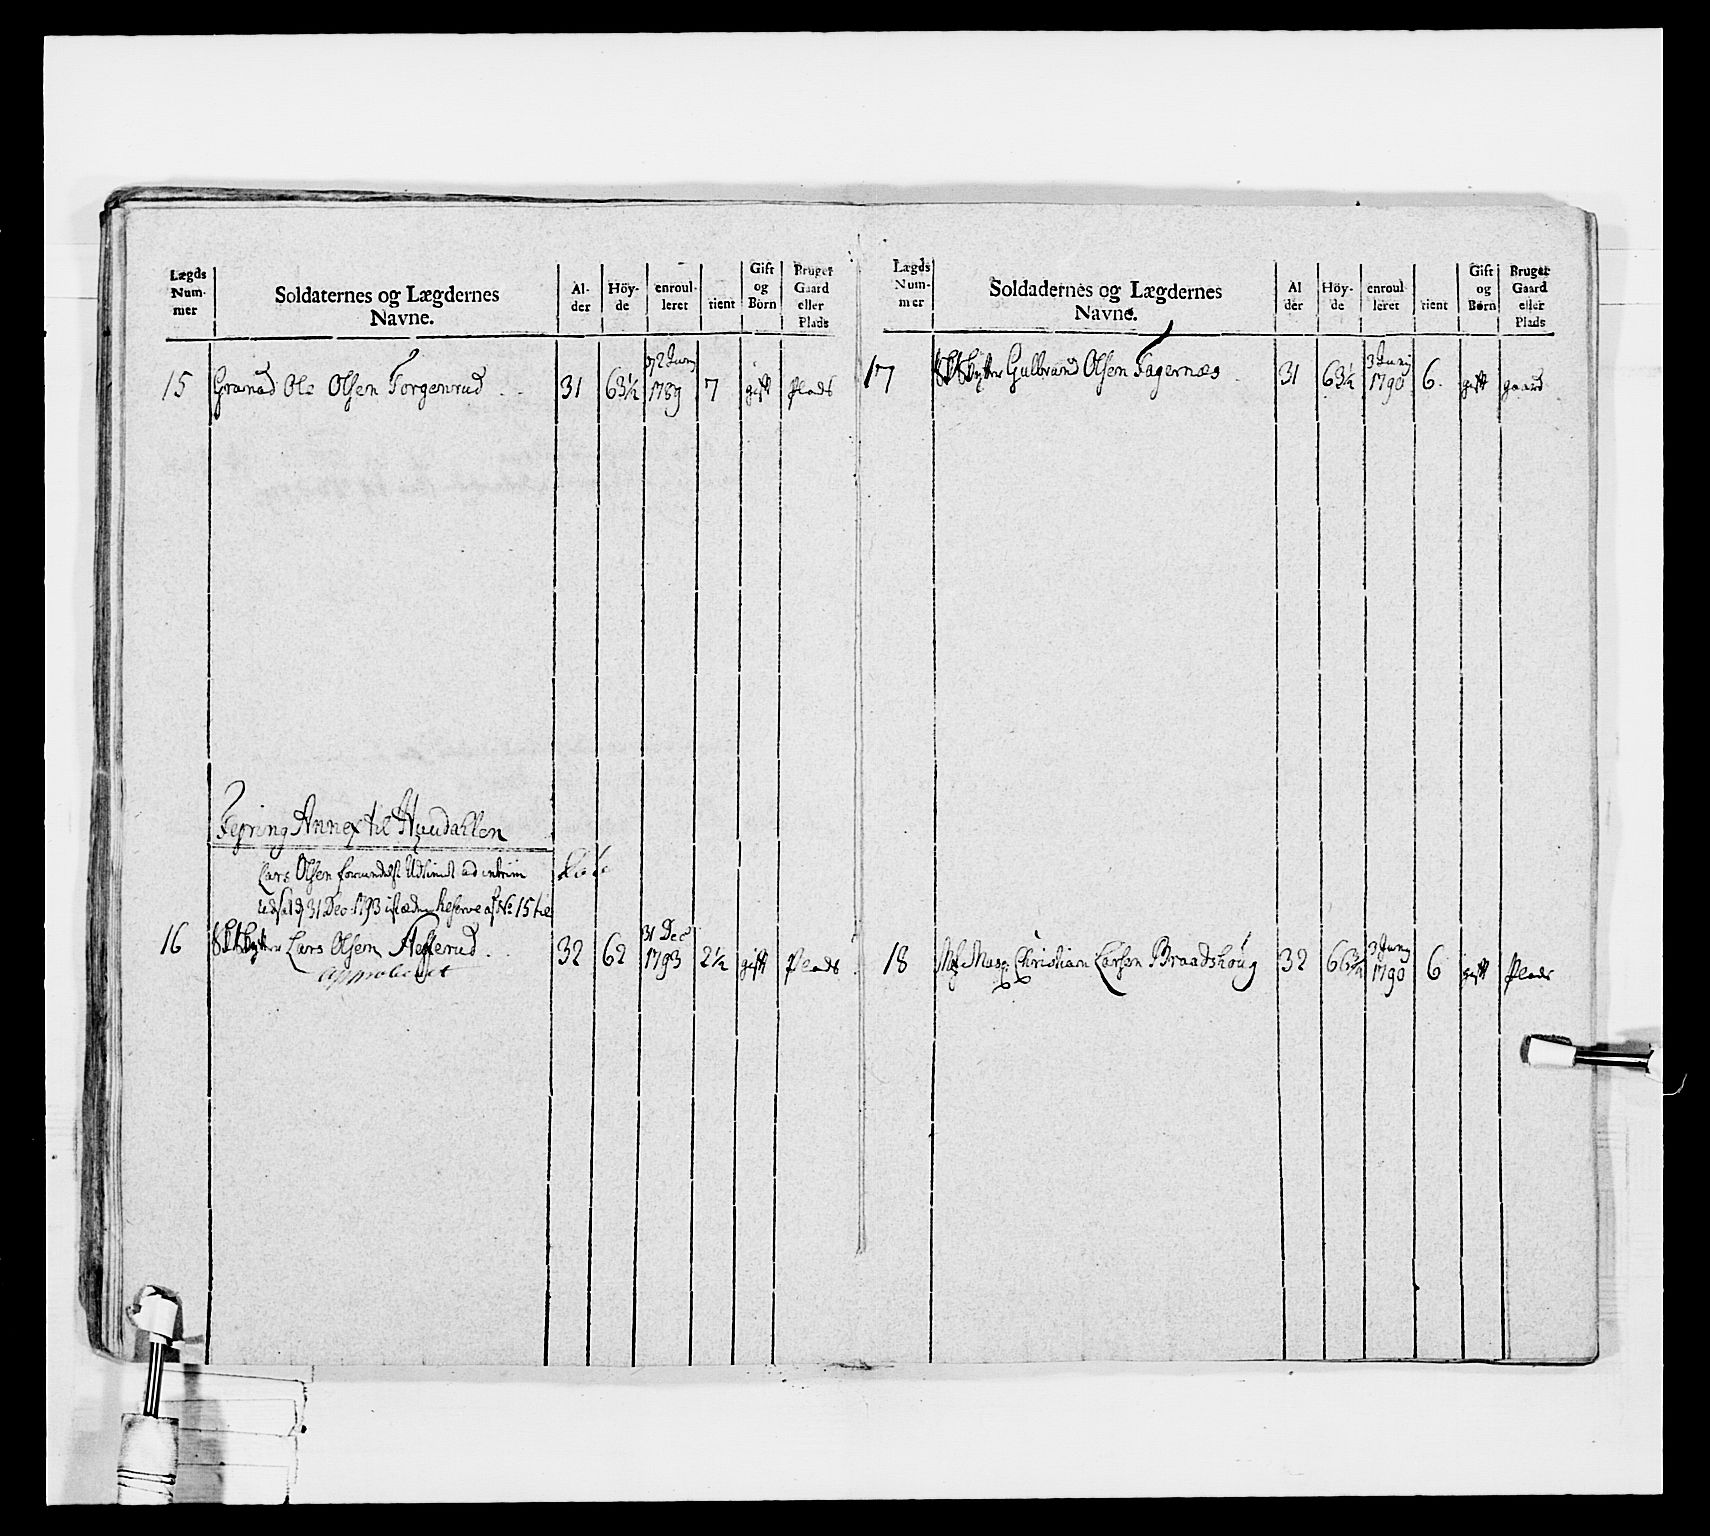 Lægds Num- mer
Soldaternes og Lægdernes Navne.
Al- der
Höy- de
enroul- leret
tient
Gift og Börn
Bruger Gaard eller Plads
15 Granad Ole Olsen Torgenrud 31 63½ Juny 1789 7 gift Plads
Annex til
Lars Olsen ad intrim
31 Dec 1793 Reserve af No 15 til
16 Lars Olsen 32 62 31 Dec 1793 2½ gift Plads
Approberet
Lægds Num- mer
Soldadernes og Lægdernes Navne.
Al der
Höy- de
enroul- leret
tient
Gift og Børn
Bruger Gaard eller Plads
17 Gulbrand Olsen Fagernæs 31 63½ 3 Juny 1790 6 gift gaard
18 Christian Larsen Braadshoug 32 3 Juny 1790 6 gift Plads